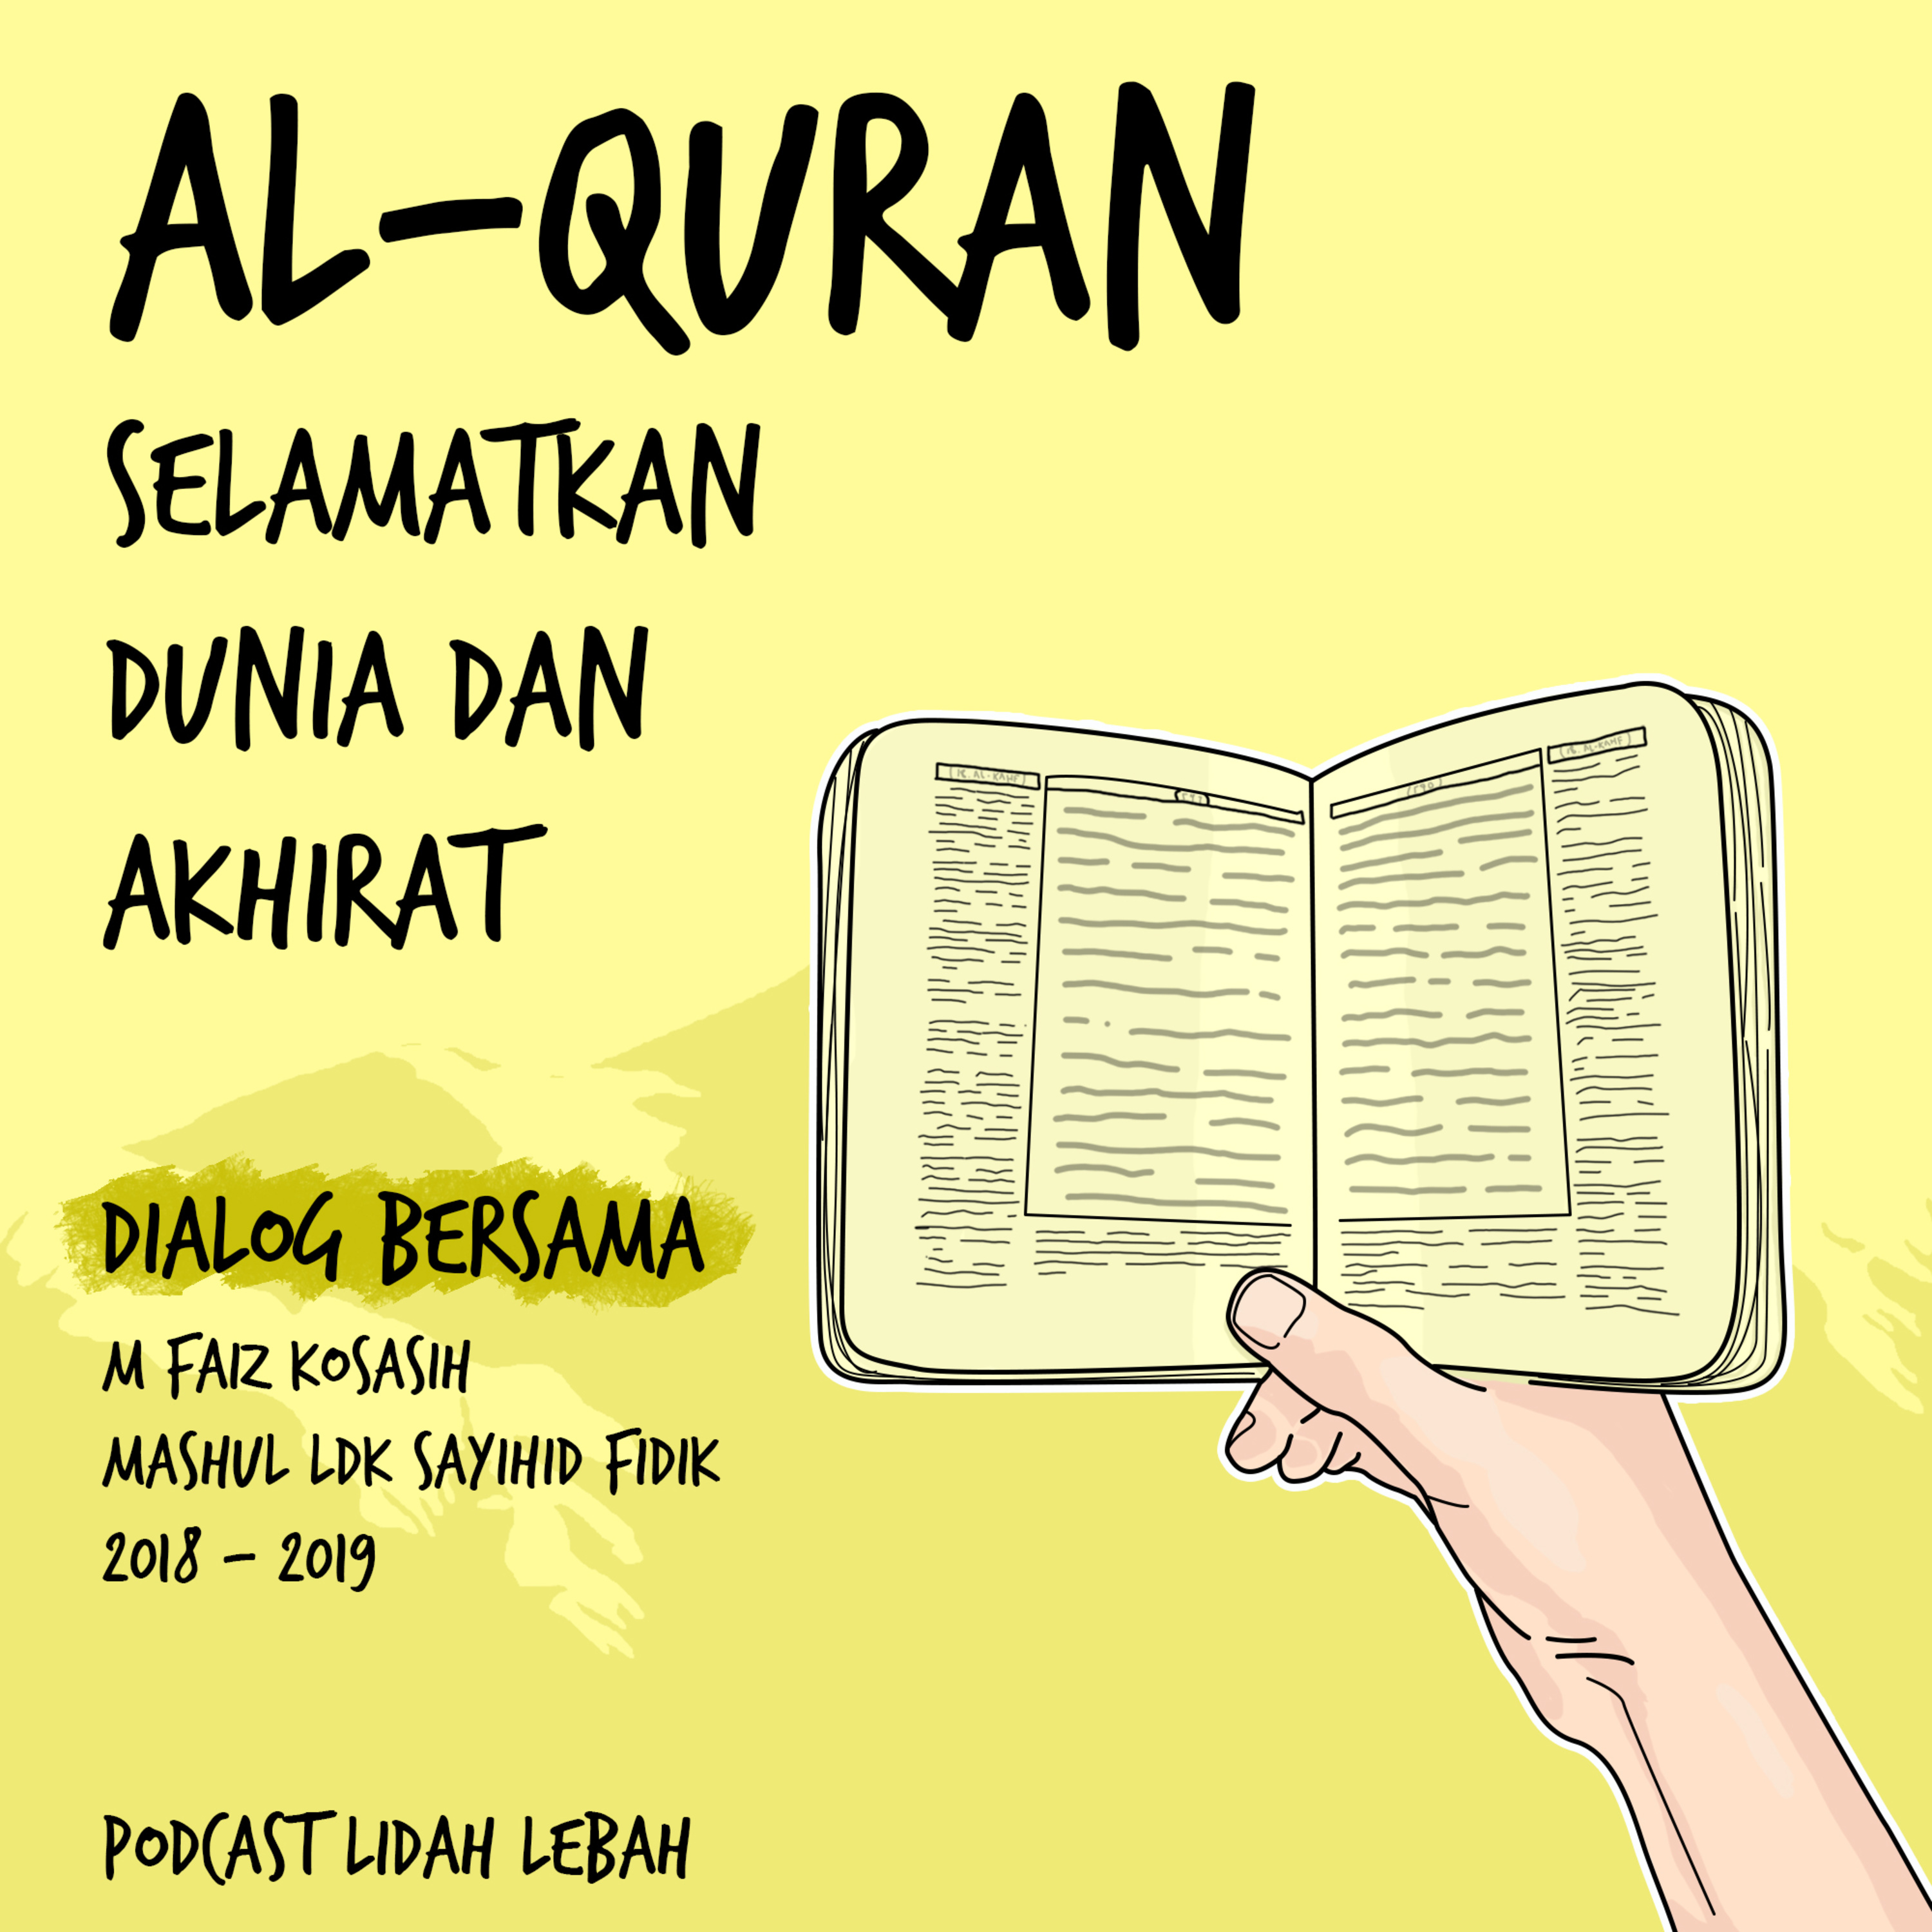 AL-QURAN
SELAMATKAN
DUNIA DAN
AKHIRAT
18. AL-KAHF
18. AL-KAHF
DIALOG BERSAMA
M FAIZ KOSASIH
MASHUL LDK SAYIHID FIDIK
2018 - 2019
PODCAST LIDAH LEBAH